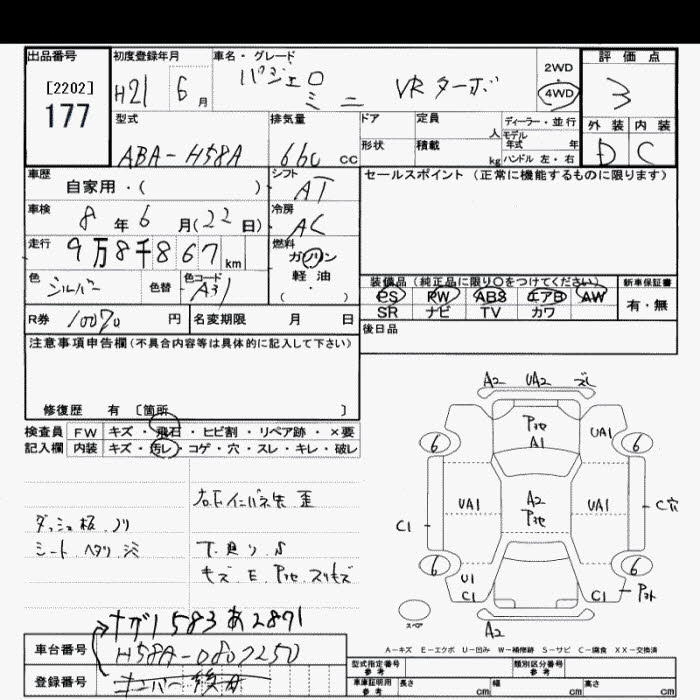 出品番号
[2202]
177
初度登録年月
H21 6月
車名・グレード
パジェロ
ミニ
VR ターボ
2WD
4WD
評価点
3
外装 内装
D C
型式
ABA-H58A
排気量
660 CC
ドア
形状
定員 人
積載 kg
ディーラー・並行
モデル年式 年
ハンドル 左・右
車歴
自家用・( )
シフト
AT
車検
8年6月(22日)
冷房
AC
走行
9万8千867km
燃料
ガソリン
軽・油
( ・ )
色
シルバー
色替
色コード
A31
R券 100% 円
名変期限 月 日
セールスポイント(正常に機能するものに限ります)
装備品(純正品に限り○をつけてください)
PS PW ABS エアB AW
SR ナビ TV カワ
新車保証書
有・無
後日品
注意事項申告欄(不具合内容等は具体的に記入して下さい)
修復歴 有 [箇所 ]
検査員 FW キズ・飛石・ヒビ割・リペア跡・×要
記入欄 内装 キズ・汚レ・コゲ・穴・スレ・キレ・破レ
ダッシュ板、ノリ
シート ヘタリ
キズ E
A2 UA2 ズレ
A1
UA1
6 6
UA1 A2 UA1
C1 C穴
6 6
U1
C1 C1
スペア
A2
A-キズ E-エクボ U-凹み W-補修跡 S-サビ C-腐食 XX-交換済
583 あ 2871
車台番号 H58A-0807250
登録番号
型式指定番号
参考
類別区分番号
参考
車庫証明用
参考
長さ cm 幅 cm 高さ cm